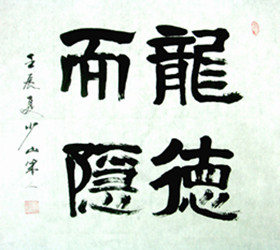 龍德
而隱
壬辰夏少山宋人